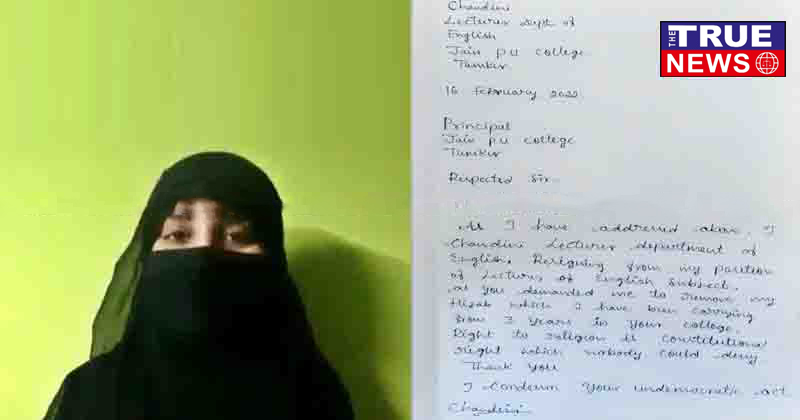 Chandini
Lecturer Dept of
English
Jain PU college
Tumkur
16 February 2022
Principal
Jain PU college
Tumkur
Respected Sir.
As I have addressed above, I
Chandini Lecturer department of
English, Resigning from my position
of Lecturer of English subject,
as you demanded me to remove my
Hijab which I have been carrying
from 3 years in your college.
Right to religion is constitutional
right which nobody could deny
Thank you
I Condemn your undemocratic act
Chandini
THE TRUE
NEWS